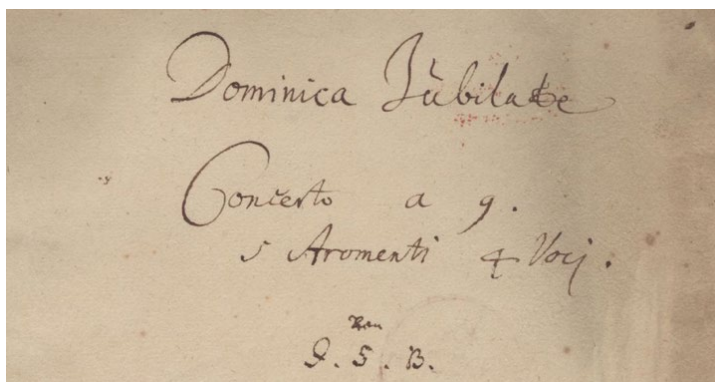 Dominica Jubilate
Concerto a 9.
5 Stromenti 4 Voci.
von
J. S. B.